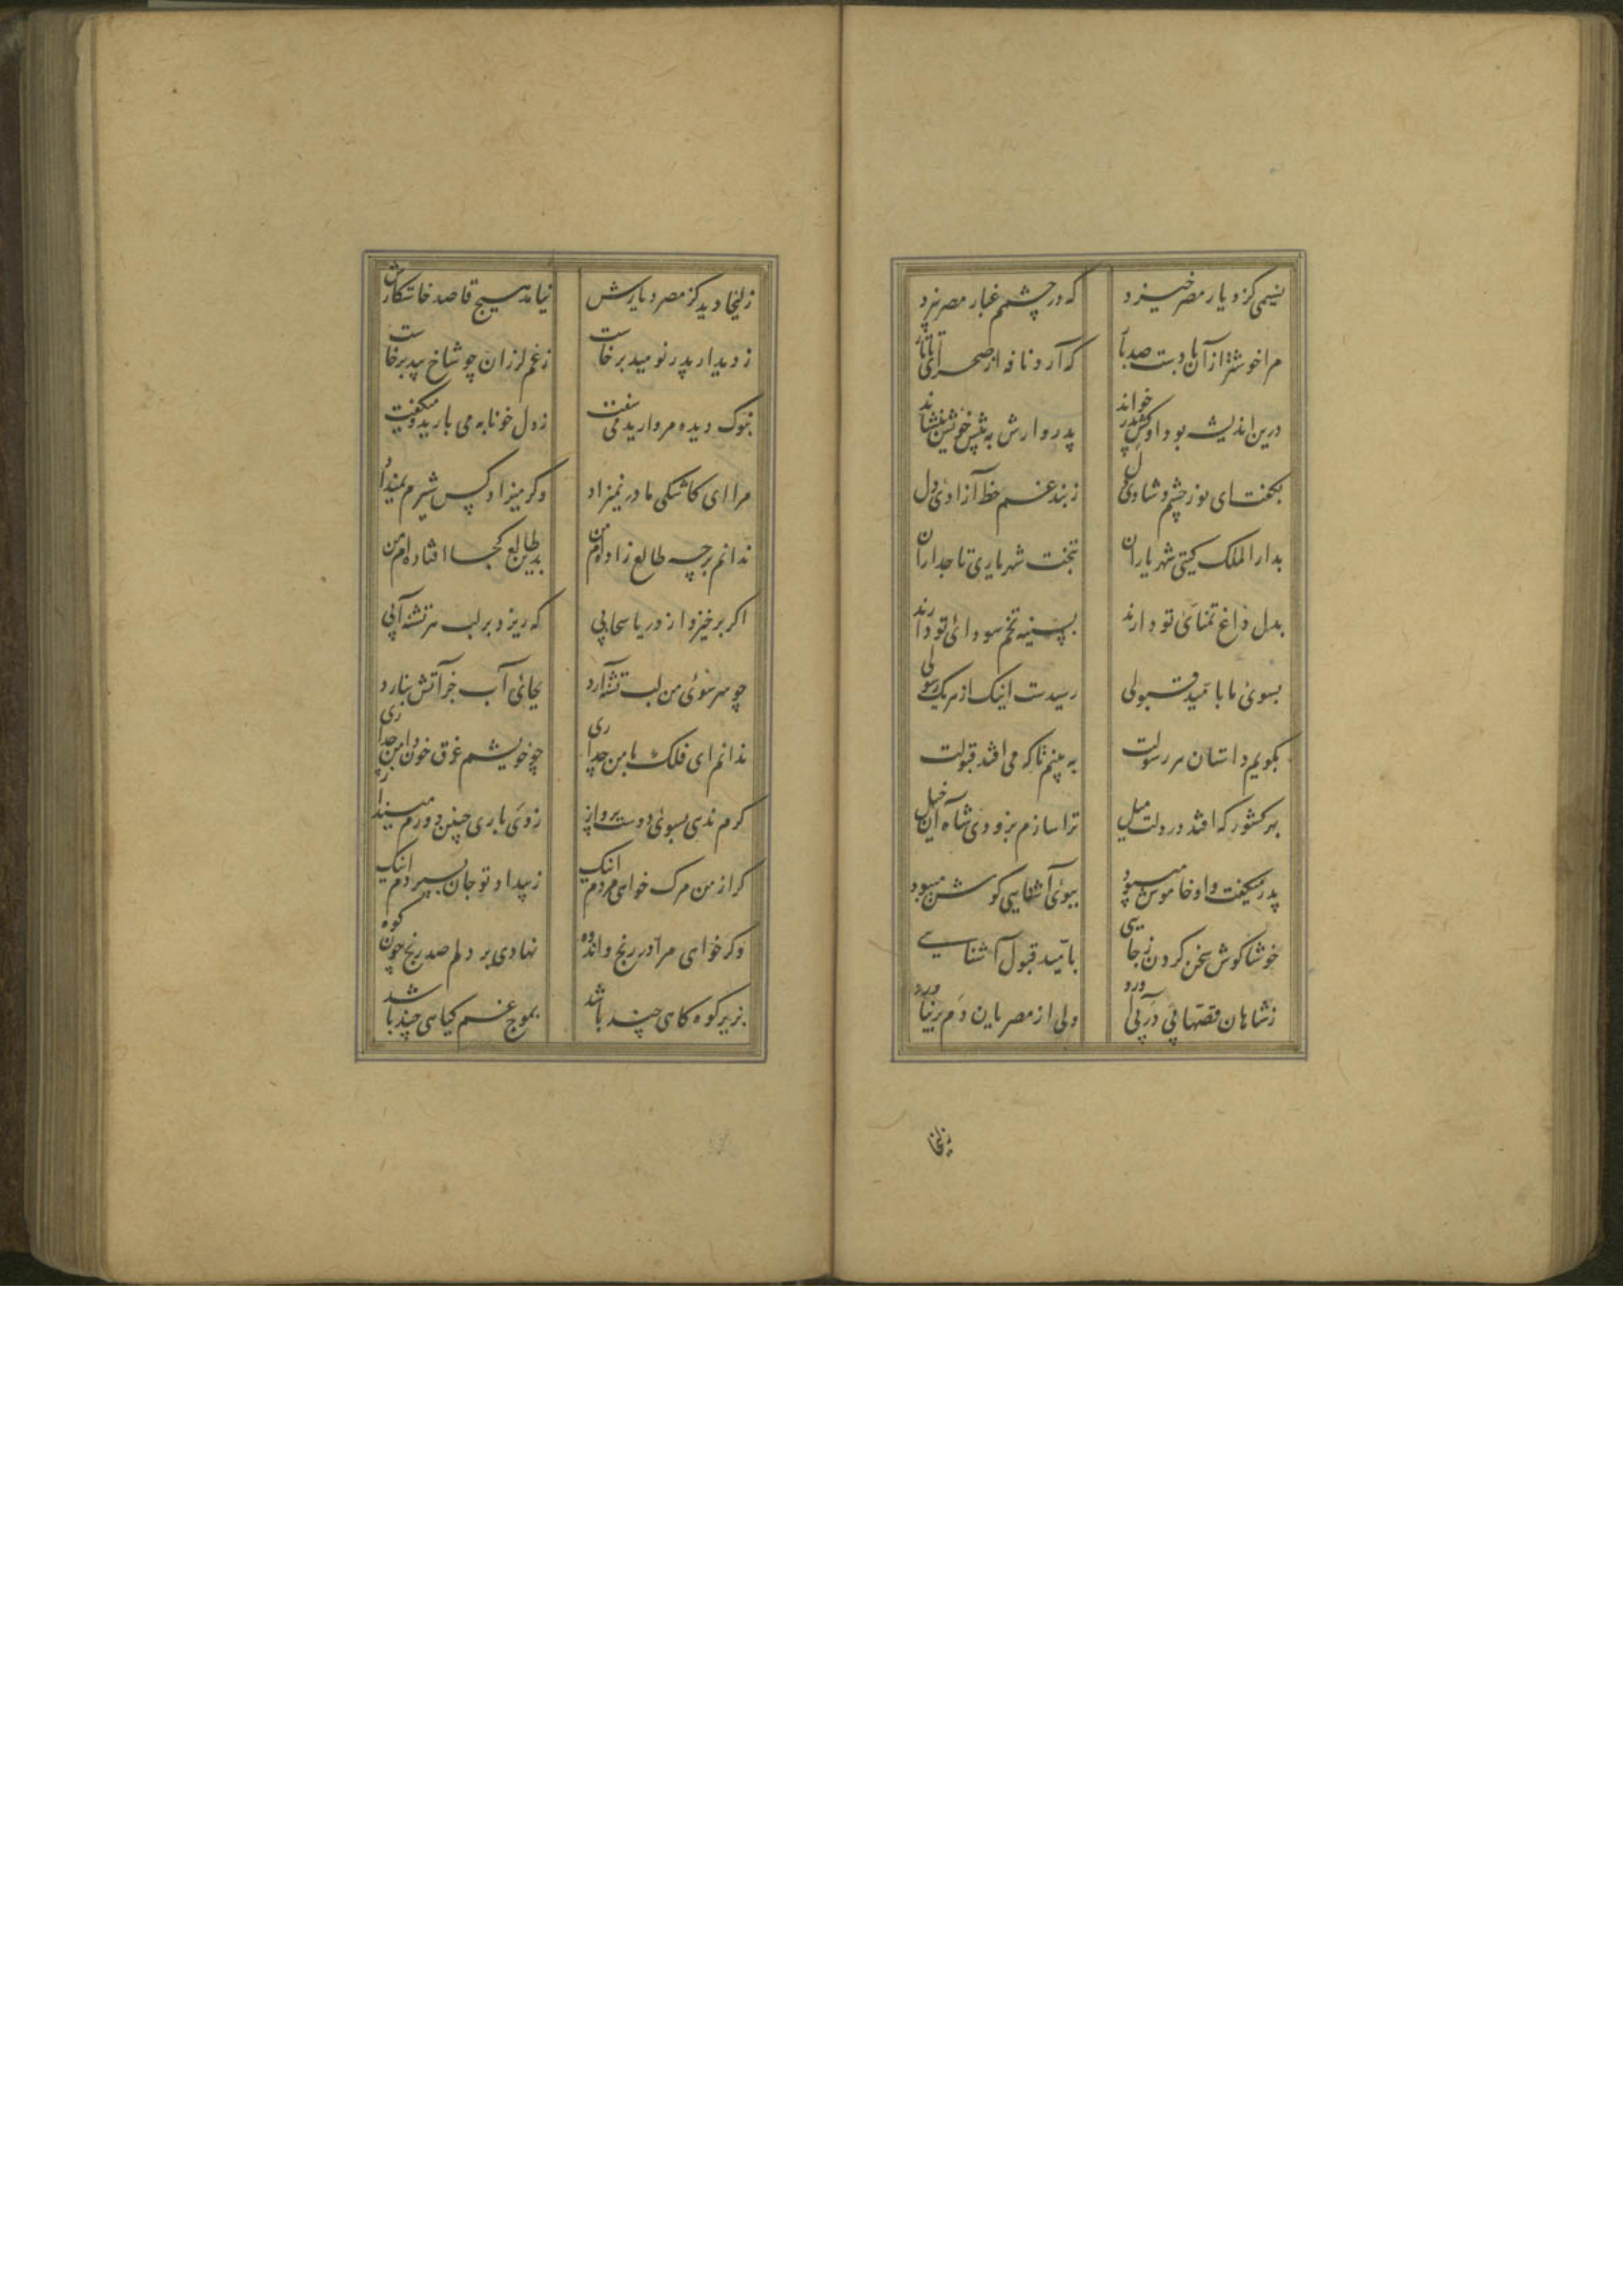 نسیمی کز دیار مصر خیزد که در چشمم غبار مصر ریزد
مرا خوشتر از آن بادست صد بار که آرد نافه از صحرای تاتار
درین اندیشه بود او کش پدر خواند پدروارش به پیش خویش بنشاند
بگفت ای نور چشم و شادی دل ز بند غم خط آزادی دل
بدار الملک گیتی شهریاران بتخت شهریاری تاجداران
بدل داغ تمنای تو دارند بسینه تخم سودای تو دارند
بسوی ما بامید قبولی رسیدست اینک از هر یک رسولی
بگویم داستان هر رسولت به بینم تا که می افتد قبولت
بهر کشور که افتد در دلت میل ترا سازم بزودی شاه آن خیل
پدر میگفت و او خاموش میبود ببوی آشنایی گوش میبود
خوشا گوش سخن کردن ز جایی بامید قبول آشنایی
ز شاهان قصهائی در پی آورد ولی از مصریان دم بر نیاورد
زلیخا
زلیخا دید کز مصر و دیارش نیامد هیچ قاصد خاستگارش
ز دیدار پدر نومید برخاست ز غم لرزان چو شاخ بید برخاست
بنوک دیده مروارید می سفت ز دل خونابه می بارید و میگفت
مرا ای کاشکی مادر نمیزاد وگر میزاد کس شیرم نمیداد
ندانم بر چه طالع زاده ام من بدین طالع کجا افتاده ام من
اگر برخیزد از دریا سحابی که ریزد بر لب هر تشنه آبی
چو سر سوی من لب تشنه آرد بجای آب جز آتش نبارد
ندانم ای فلک با من چه داری چو خویشم غرق خون دامن چه داری
گرم ندهی بسوی دوست پرواز ز وی باری چنین دورم میندار
گر از من مرگ خواهی مردم اینک ز بیداد تو جان بسپردم اینک
وگر خواهی مرا در رنج و اندوه نهادی بر دلم صد رنج چون کوه
بزیر کوه کاهی چند باشد بموج غم گیاهی چند باشد